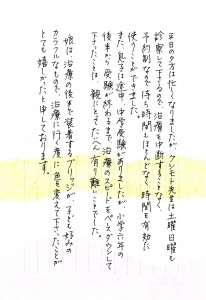 平日の夕方は忙しくなりましたが、クシモト先生は土曜日曜も
診察して下さるので、治療を中断することなく、
予約制なので待ち時間もほとんどなく、時間を有効に
使うことができました。
また、息子は途中、中学受験がありましたが、小学六年の
後半から受験が終わるまで治療のスピードをペースダウンして
下さったことは、親にとってたいへん有り難いことでした。
娘は治療の後半に装着するブリッジが、子ども好みの
カラフルなもので、治療に行く度に色を変えて下さったことが
とても嬉しかったと申しております。